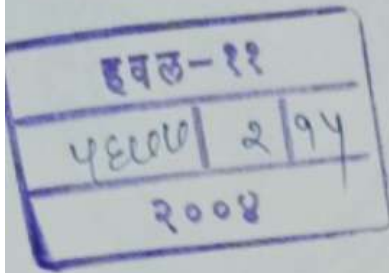 हवल-११
५६७७ | २ | १५
२००४